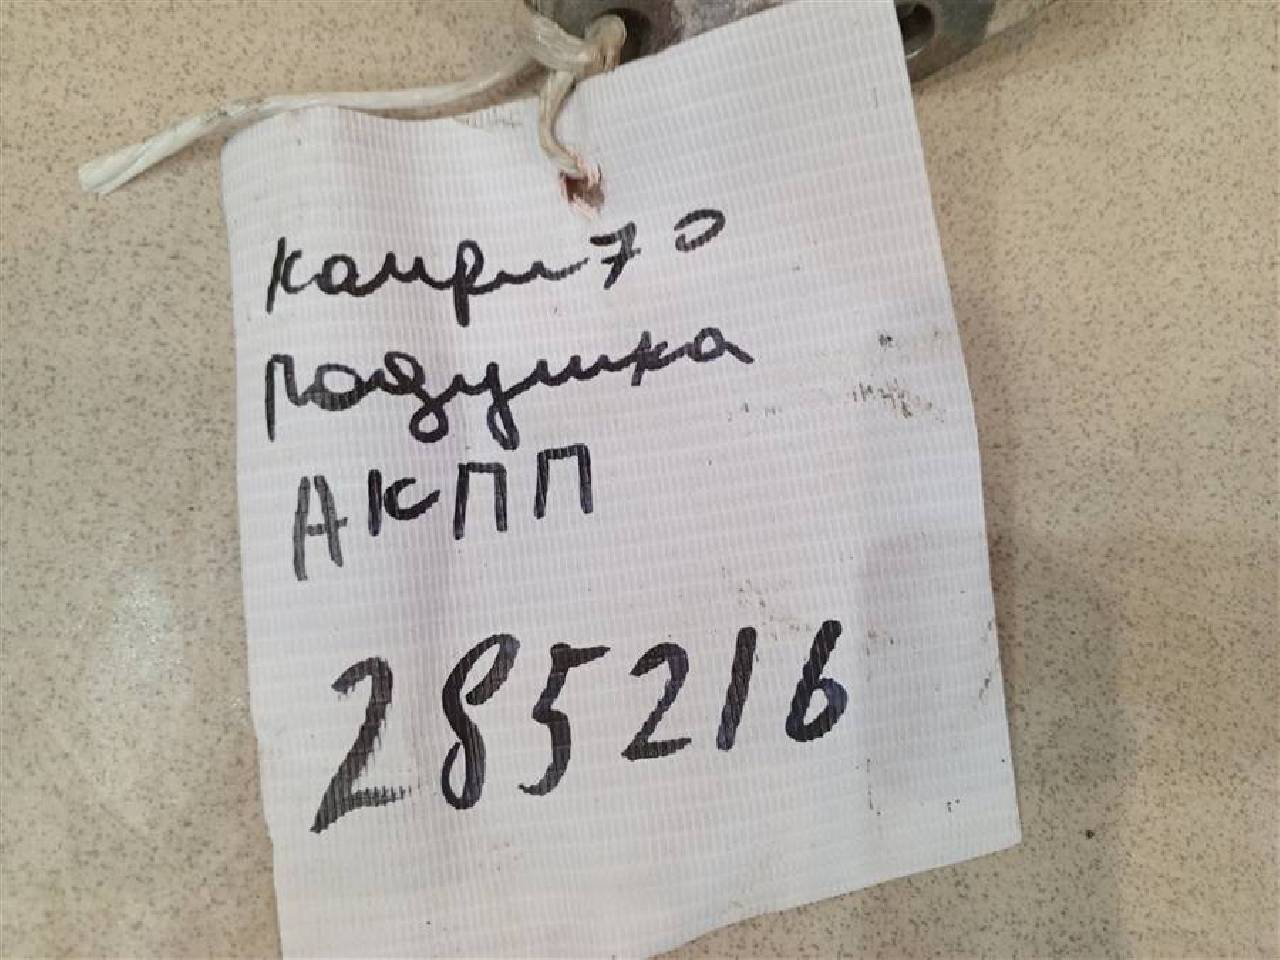 камри 70
подушка
АКПП
285216